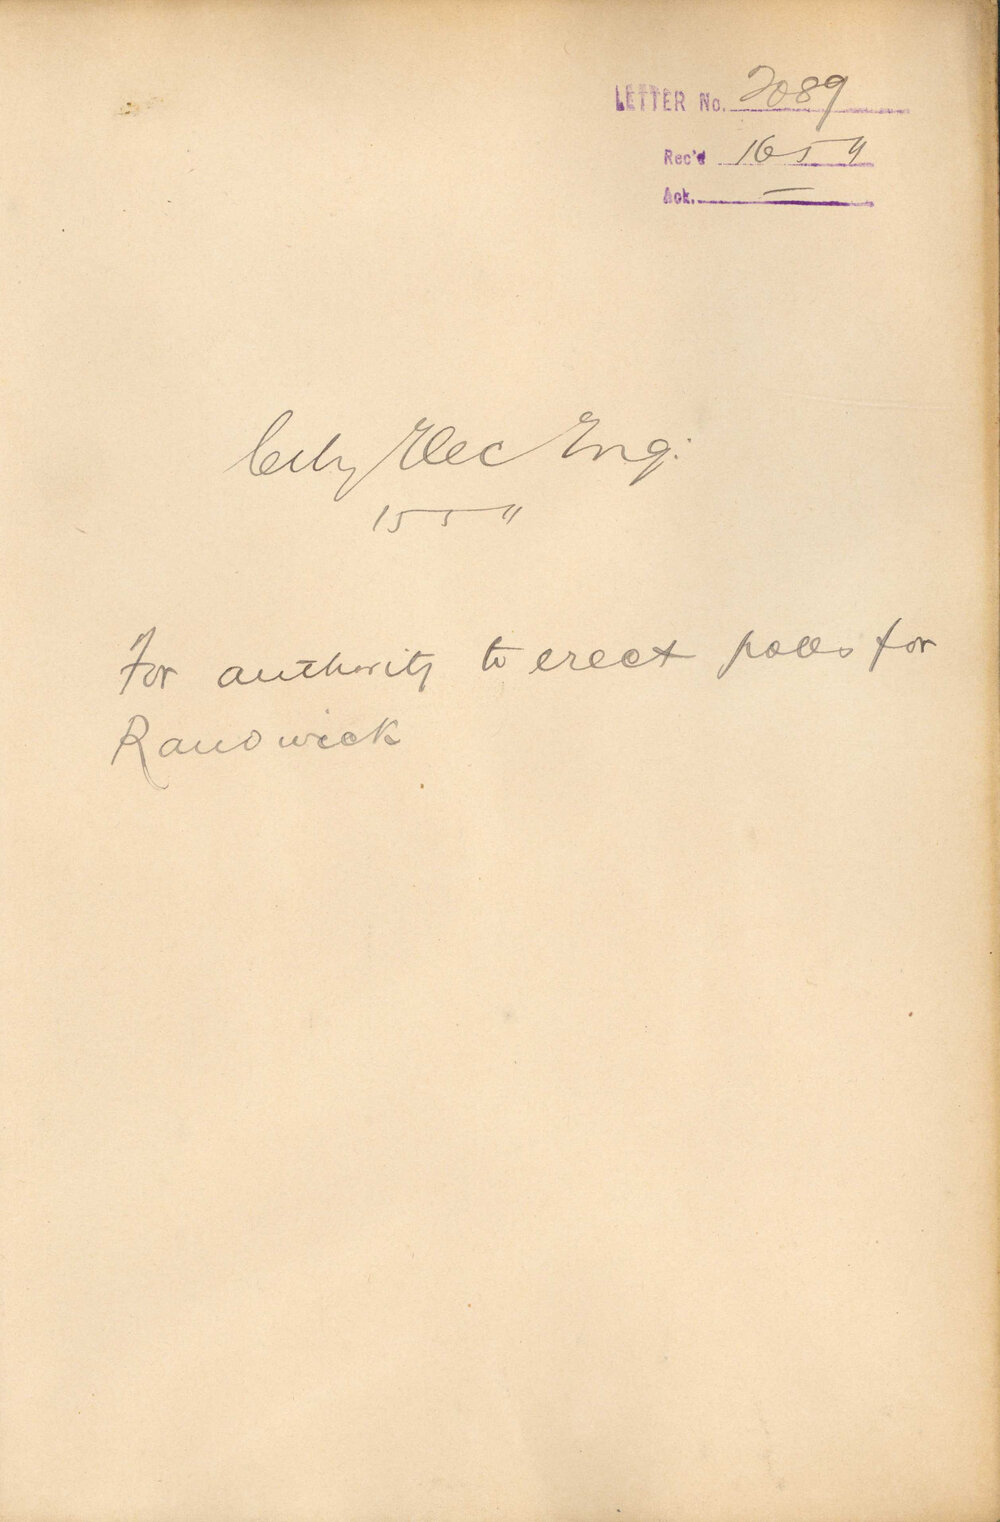 LETTER No. 2089
Rec'd 16 5 11
Ack. —
City Elec Eng:
15 5 11
For authority to erect poles for
Randwick